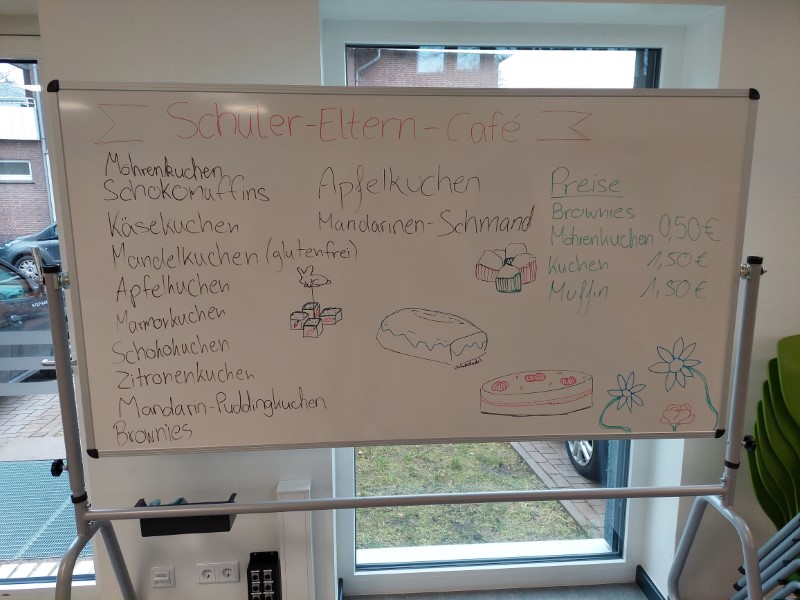 Schüler-Eltern-Café
Möhrenkuchen
Schokomuffins
Käsekuchen
Mandelkuchen (glutenfrei)
Apfelkuchen
Marmorkuchen
Schokokuchen
Zitronenkuchen
Mandarin-Puddingkuchen
Brownies
Apfelkuchen
Mandarinen-Schmand
Preise
Brownies
Möhrenkuchen 0,50€
Kuchen 1,50€
Muffin 1,50€